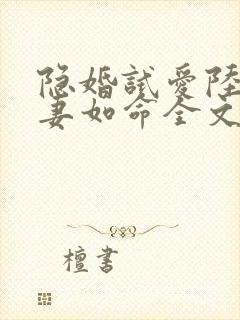 隐婚试爱陆
妻如命全文
檀书